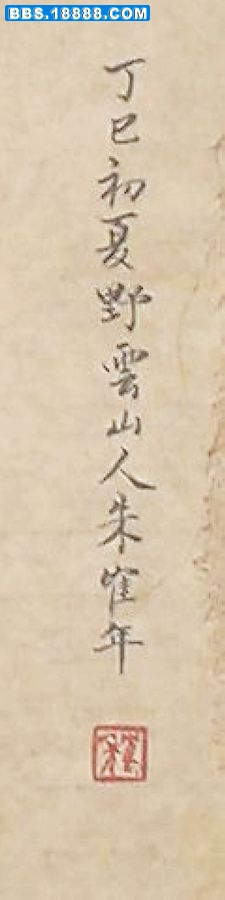 BBS.18888.COM
丁巳初夏野雲山人朱隺年